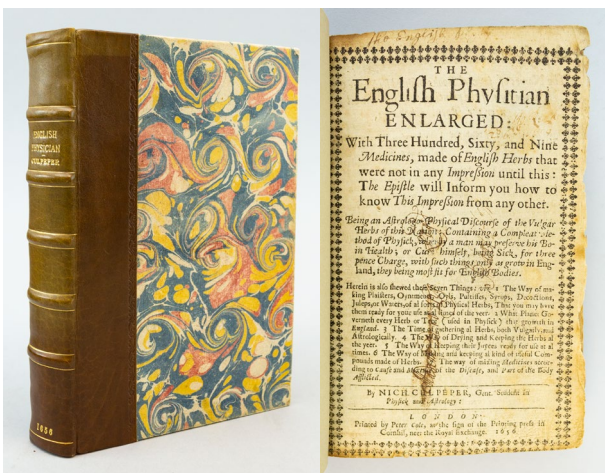 ENGLISH
PHYSICIAN
CULPEPER
1656
THE
Engliſh Phyſitian
ENLARGED:
With Three Hundred, Sixty, and Nine
Medicines, made of Engliſh Herbs that
were not in any Impreſsion until this:
The Epiſtle will Inform you how to
know This Impreſsion from any other.
Being an Aſtrologo-Phyſical Diſcourſe of the Vulgar
Herbs of this Nation; Containing a Compleat Me-
thod of Phyſick, whereby a man may preſerve his Bo-
in Health; or Cure himſelf, being Sick, for three
pence Charge, with ſuch things only as grow in Eng-
land, they being moſt fit for Engliſh Bodies.
Herein is alſo ſhewed theſe Seven Things: 1 The Way of ma-
king Plaiſters, Oyntments, Oyls, Pultiſſes, Syrups, Decoctions,
Juleps, or Waters, of al ſorts of Phyſical Herbs, That you may have
them ready for your uſe at al times of the year. 2 What Planet Go-
verneth every Herb or Tree (uſed in Phyſick) that groweth in
England. 3 The Time of gathering al Herbs, both Vulgarly, and
Aſtrologically. 4 The Way of Drying and Keeping the Herbs al
the year. 5 The Way of Keeping their Juyces ready for uſe at al
times. 6 The Way of Making and keeping al kind of uſeful Com-
pounds made of Herbs. 7 The way of mixing Medicines accor-
ding to Cauſe and Mixture of the Diſeaſe, and Part of the Body
Afflicted.
By NICH. CULPEPER, Gent. Student in
Phyſick and Aſtrology:
LONDON:
Printed by Peter Cole, at the ſign of the Printing preſs in
Cornhil, neer the Royal Exchange. 1656